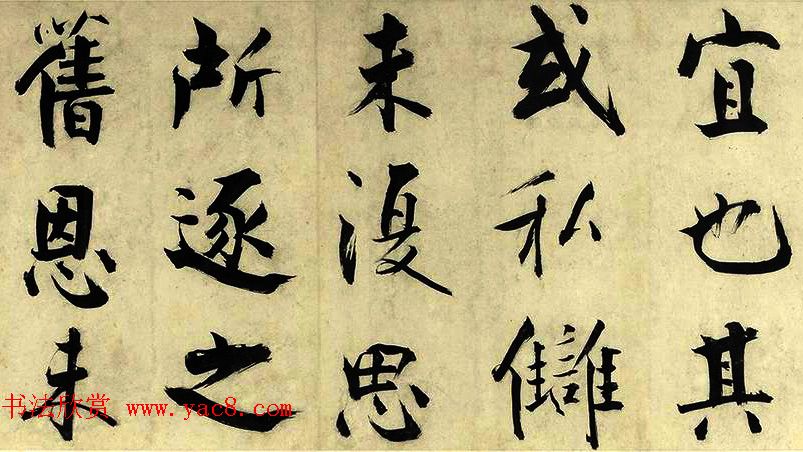 宜也其
或私讎
未復思
所逐之
舊恩未
书法欣赏 www.yac8.com